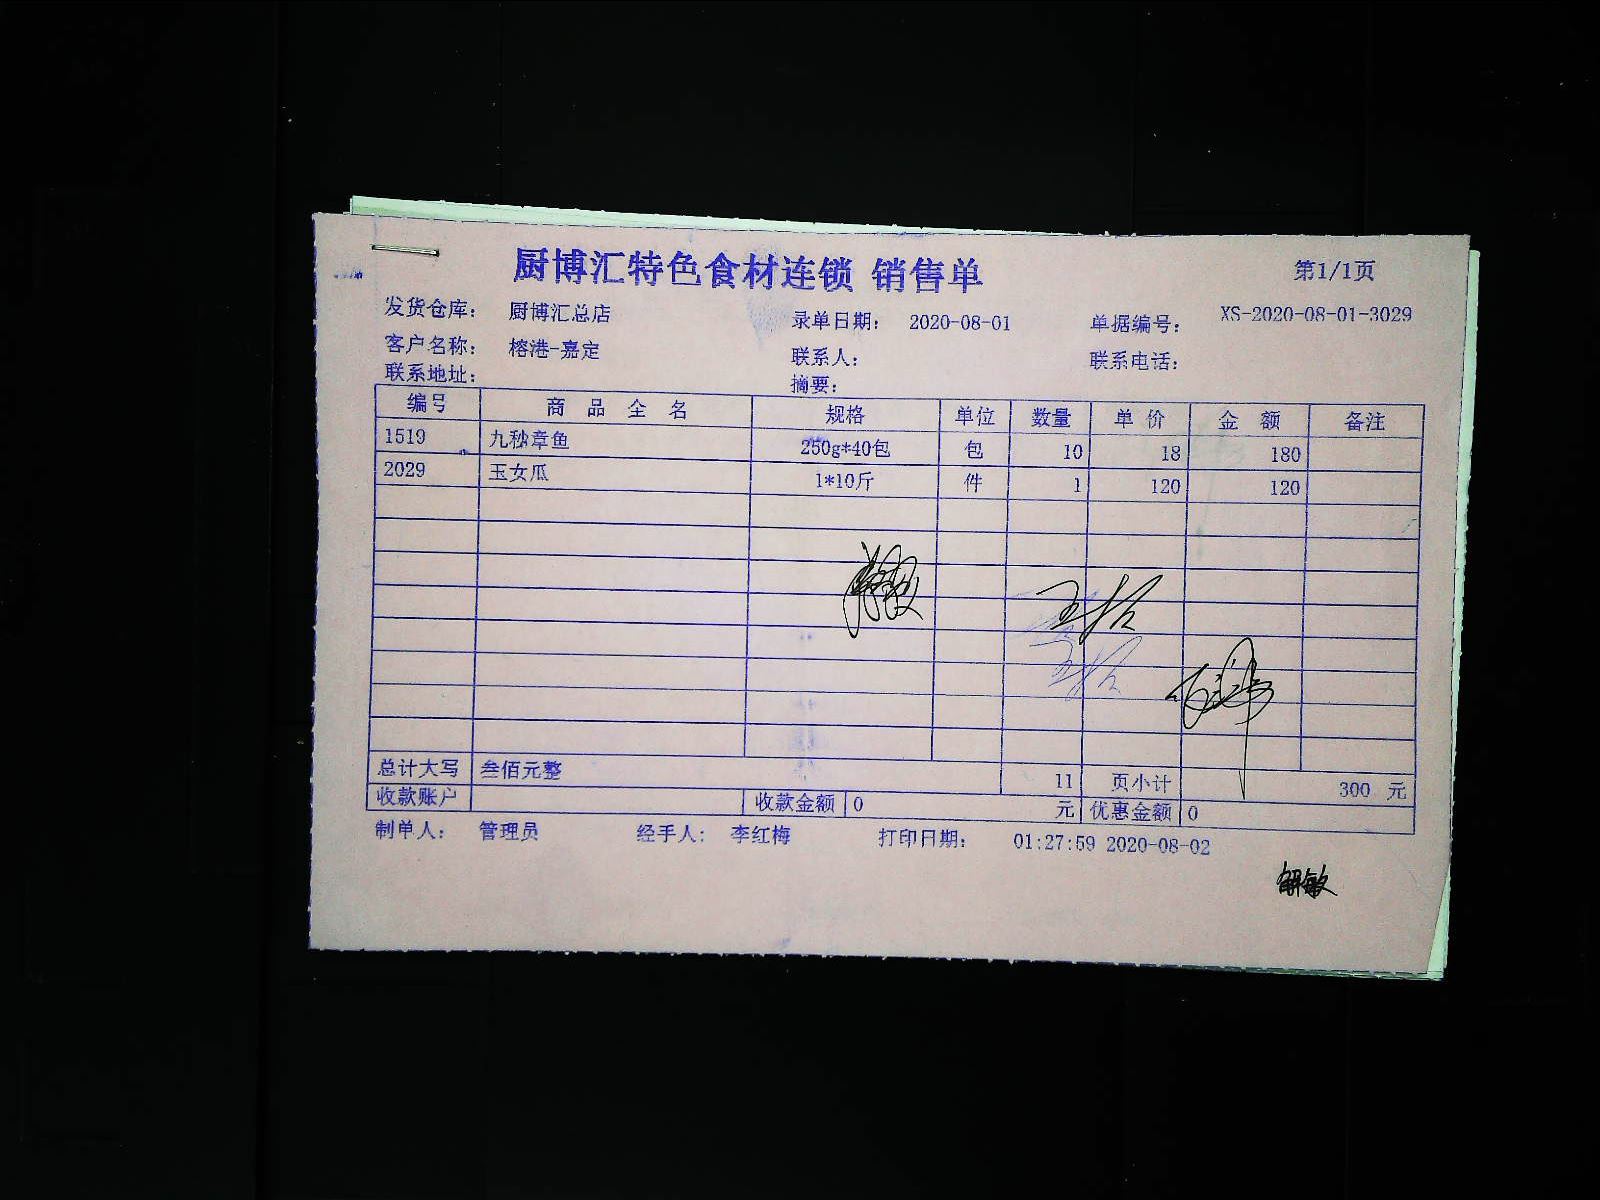 厨博汇特色食材连锁 销售单
第1/1页
发货仓库： 厨博汇总店 录单日期： 2020-08-01 单据编号： XS-2020-08-01-3029
客户名称： 榕港-嘉定 联系人： 联系电话：
联系地址： 摘要：
编号 商 品 全 名 规格 单位 数量 单 价 金 额 备注
1519 九秒章鱼 250g*40包 包 10 18 180
2029 玉女瓜 1*10斤 件 1 120 120
总计大写 叁佰元整 11 页小计 300 元
收款账户 收款金额 0 元 优惠金额 0
制单人： 管理员 经手人： 李红梅 打印日期： 01:27:59 2020-08-02
解敏